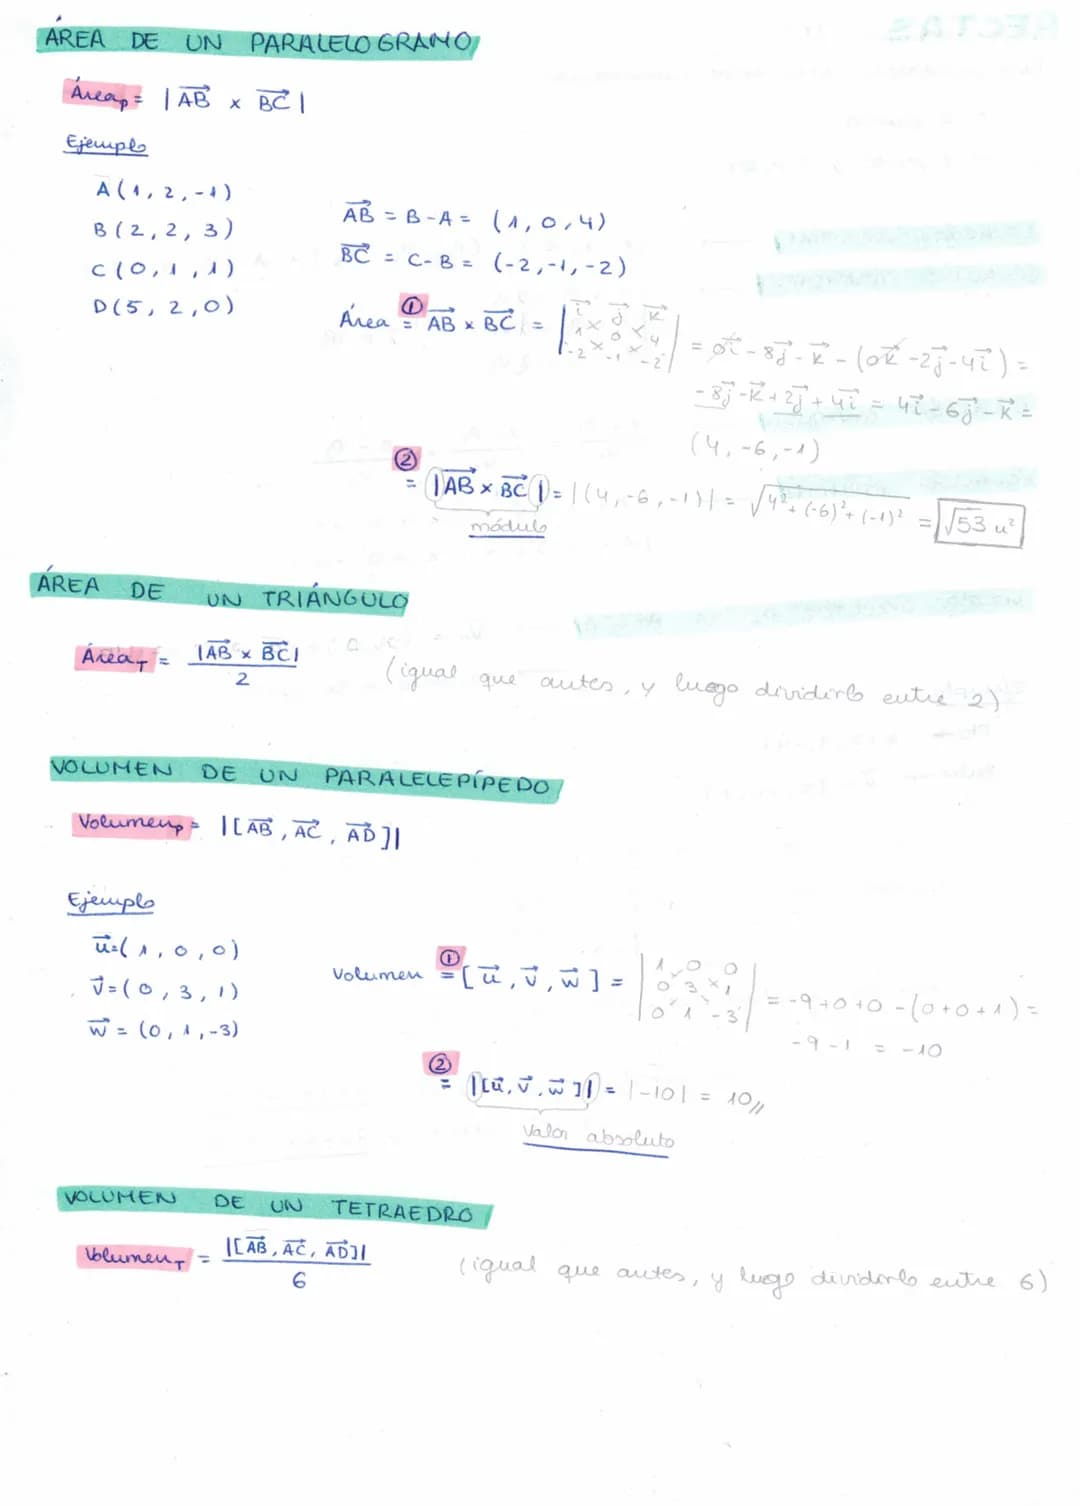 ÁREA DE UN PARALELOGRAMO
Áreaₚ = |AB⃗ x BC⃗|
Ejemplo
A(1, 2, -1)
B(2, 2, 3)
C(0, 1, 1)
D(5, 2, 0)
AB⃗ = B-A = (1, 0, 4)
BC⃗ = C-B = (-2, -1, -2)
Área =① AB⃗ x BC⃗ = | i⃗ j⃗ k⃗ |
| 1 0 4 |
| -2 -1 -2 |
= 0i⃗ - 8j⃗ - k⃗ - (0k⃗ - 2j⃗ - 4i⃗) =
-8j⃗ - k⃗ + 2j⃗ + 4i⃗ = 4i⃗ - 6j⃗ - k⃗ =
(4, -6, -1)
② = |AB⃗ x BC⃗| = |(4, -6, -1)| = √4² + (-6)² + (-1)² = √53 u²
módulo
ÁREA DE UN TRIÁNGULO
Área_T = |AB⃗ x BC⃗| / 2 (igual que antes, y luego dividirlo entre 2)
VOLUMEN DE UN PARALELEPÍPEDO
Volumenₚ = |[AB⃗, AC⃗, AD⃗]|
Ejemplo
u⃗ = (1, 0, 0)
v⃗ = (0, 3, 1)
w⃗ = (0, 1, -3)
Volumen =① [u⃗, v⃗, w⃗] = | 1 0 0 |
| 0 3 1 |
| 0 1 -3 |
= -9 + 0 + 0 - (0 + 0 + 1) =
-9 - 1 = -10
② = |[u⃗, v⃗, w⃗]| = |-10| = 10//
Valor absoluto
VOLUMEN DE UN TETRAEDRO
Volumen_T = |[AB⃗, AC⃗, AD⃗]| / 6 (igual que antes, y luego dividirlo entre 6)